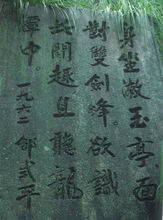 身坐漱玉亭面
對雙劍峰欲識
此間趣且聽龍
潭中。一九六二 邵式平